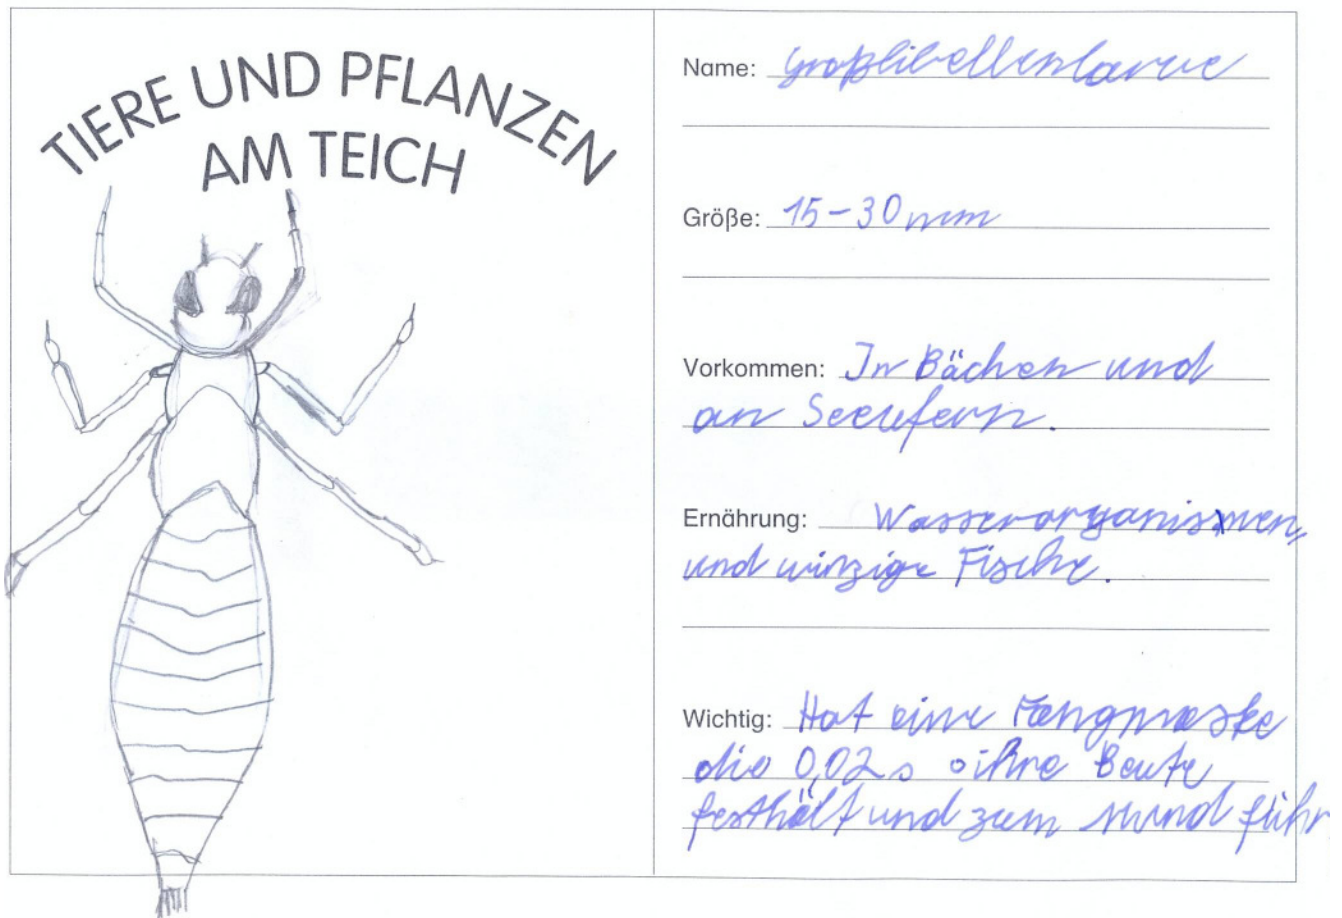 TIERE UND PFLANZEN
AM TEICH
Name: Großlibellenlarve
Größe: 15-30 mm
Vorkommen: In Bächen und
an Seeufern.
Ernährung: Wasserorganismen,
und winzige Fische.
Wichtig: Hat eine Fangmaske
die 0,02 s ihre Beute
festhält und zum Mund führ